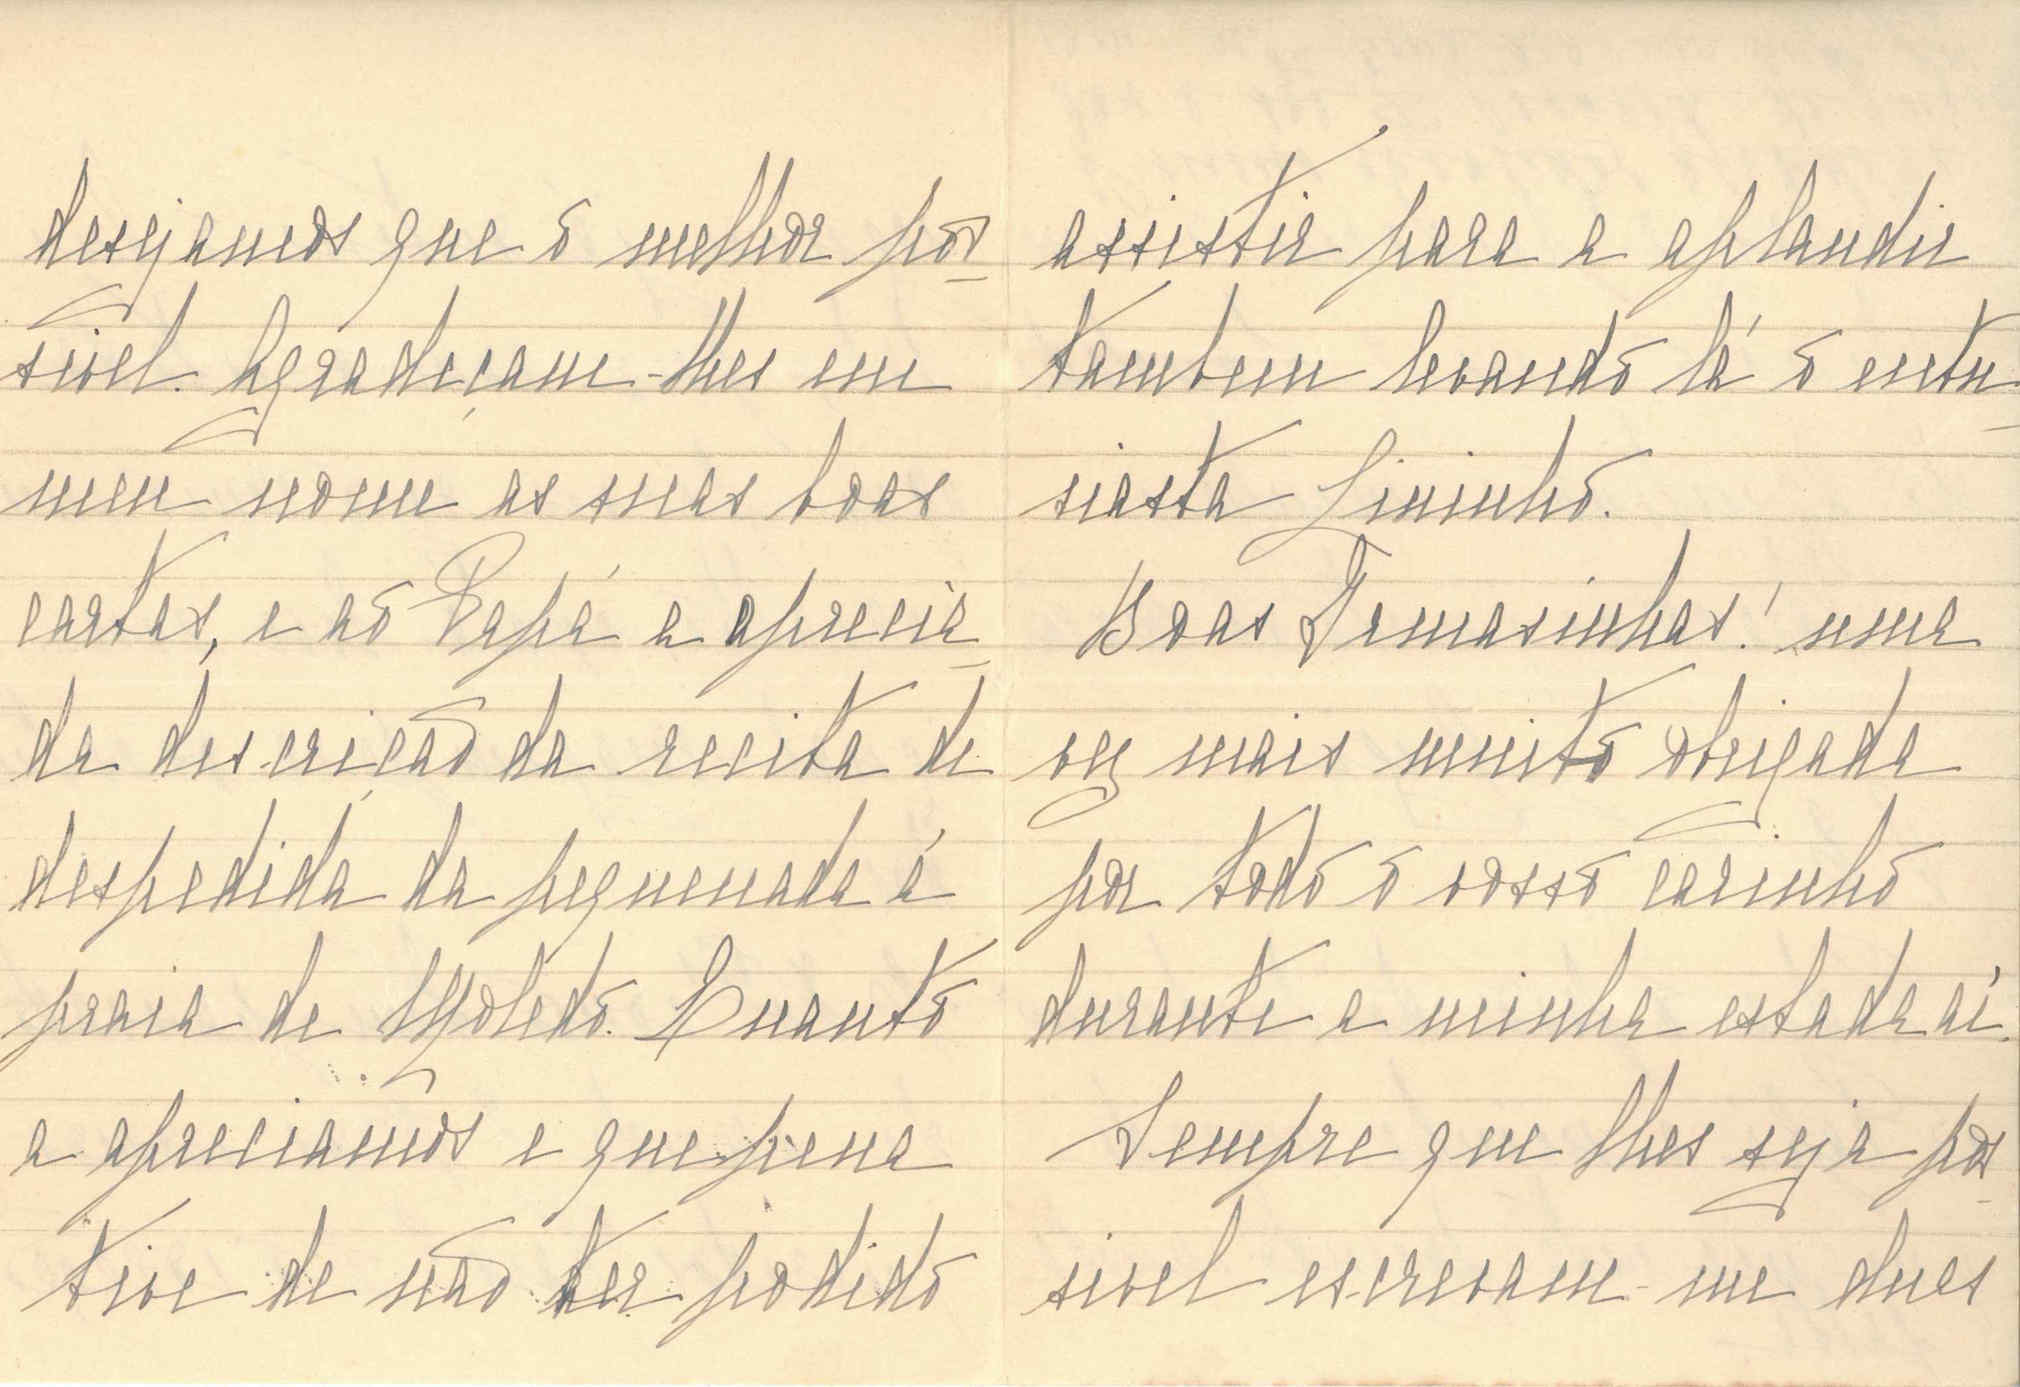 desejamos que o melhor pos-
sivel. Agradeçam-lhes em
meu nome as suas boas
cartas, e ao Papá a aprecia-
da descrição da recita de
despedida da pequenada á
praia de Moledo. Quanto
a apreciamos e que pena
tive de não ter podido
assistir para a aplaudir
tambem levando lá o entu-
siasta Lininho.
Boas Irmasinhas! uma
vez mais muito obrigada
por todo o vosso carinho
durante a minha estada aí.
Sempre que lhes seja pos-
sivel escrevam-me dues